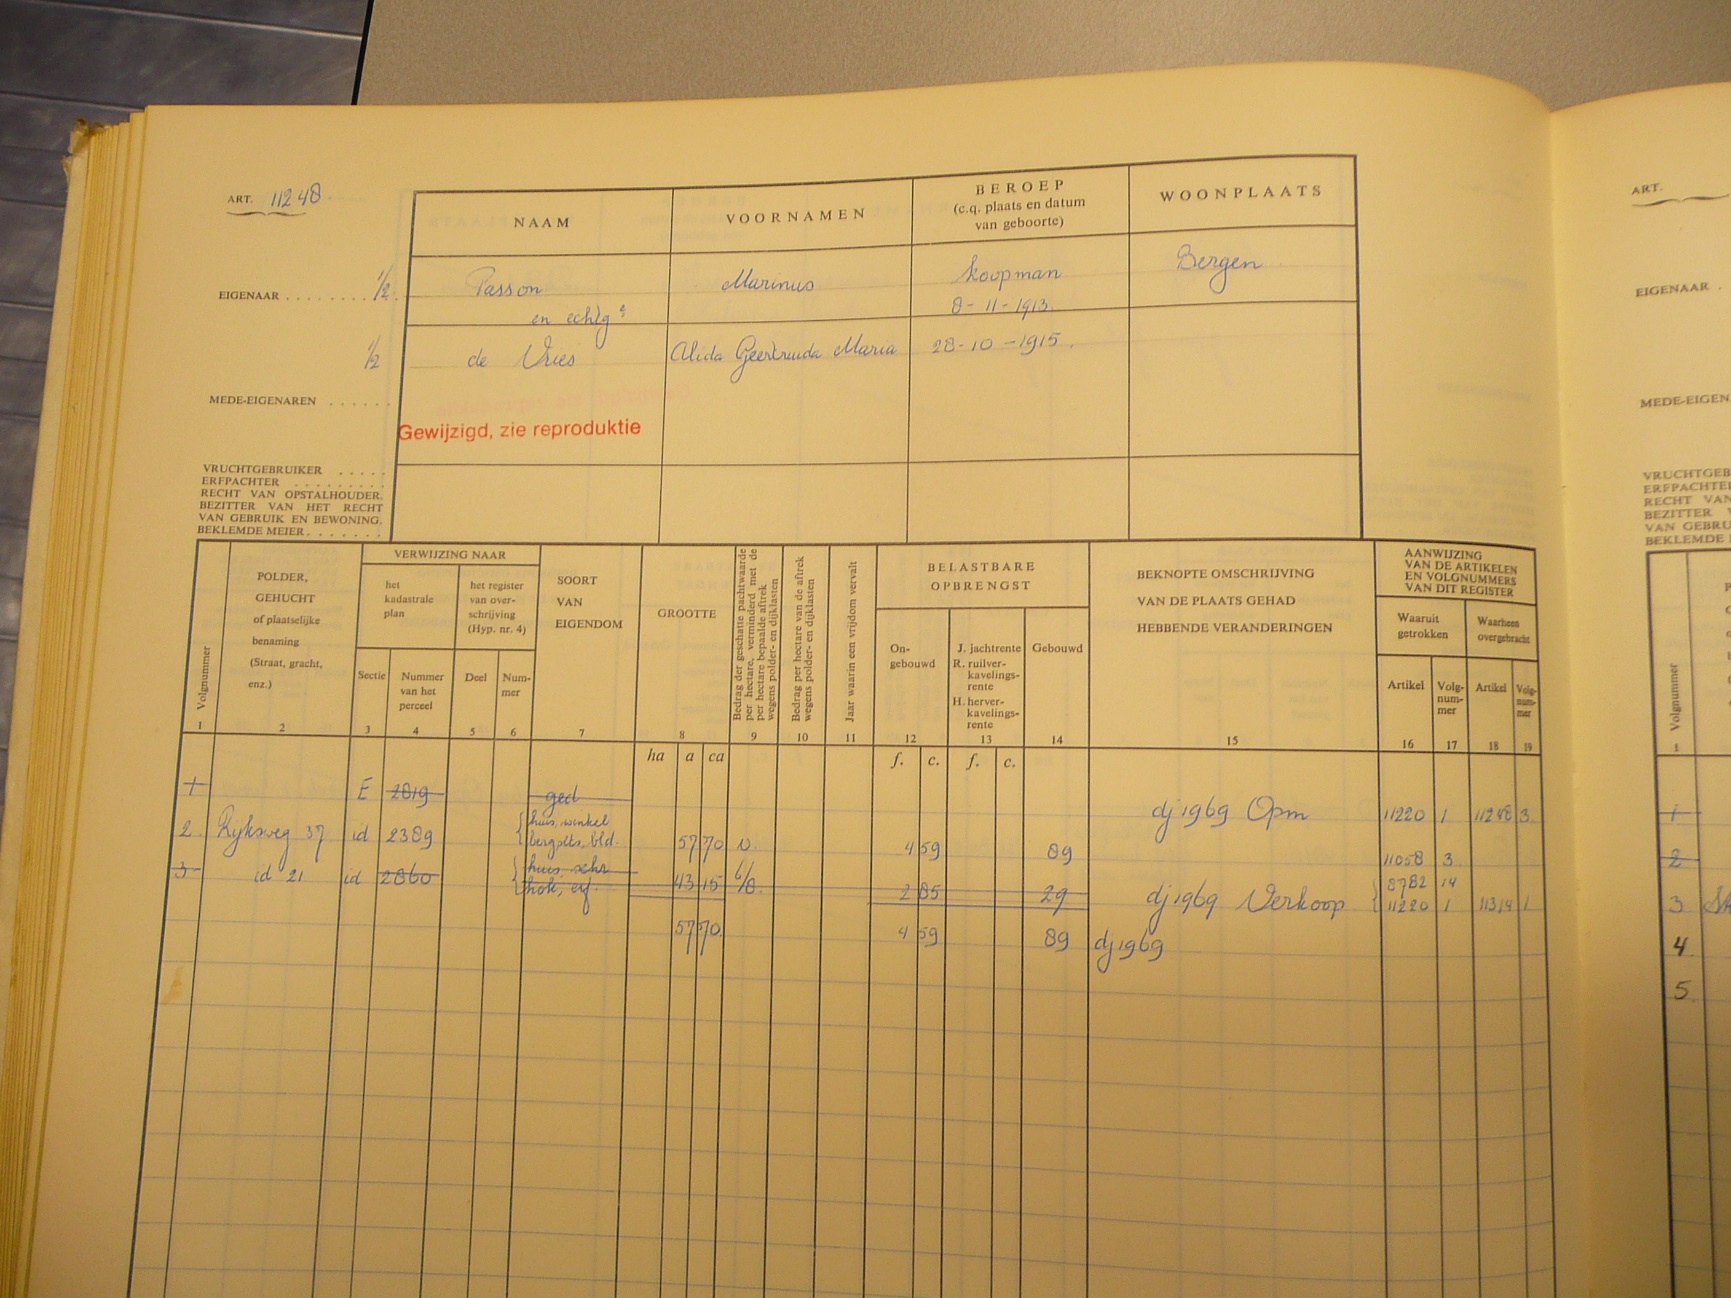 ART. 11248
NAAM
VOORNAMEN
BEROEP
(c.q. plaats en datum
van geboorte)
WOONPLAATS
EIGENAAR . . . . . . . . 1/2
Passon
Marinus
koopman
Bergen
en echtge
8-11-1913.
1/2
de Vries
Alida Geertruida Maria
28-10-1915.
MEDE-EIGENAREN . . . . . .
Gewijzigd, zie reproduktie
VRUCHTGEBRUIKER . . . . .
ERFPACHTER . . . . . . . . .
RECHT VAN OPSTALHOUDER.
BEZITTER VAN HET RECHT
VAN GEBRUIK EN BEWONING.
BEKLEMDE MEIER . . . . . . .
Volgnummer
POLDER,
GEHUCHT
of plaatselijke
benaming
(Straat, gracht,
enz.)
VERWIJZING NAAR
het
kadastrale
plan
het register
van over-
schrijving
(Hyp. nr. 4)
Sectie
Nummer
van het
perceel
Deel
Num-
mer
SOORT
VAN
EIGENDOM
GROOTTE
Bedrag der geschatte pachtwaarde
per hectare, verminderd met de
per hectare bepaalde aftrek
wegens polder- en dijklasten
Bedrag per hectare van de aftrek
wegens polder- en dijklasten
Jaar waarin een vrijdom vervalt
BELASTBARE
OPBRENGST
On-
gebouwd
J. jachtrente
R. ruilver-
kavelings-
rente
H. herver-
kavelings-
rente
Gebouwd
BEKNOPTE OMSCHRIJVING
VAN DE PLAATS GEHAD
HEBBENDE VERANDERINGEN
AANWIJZING
VAN DE ARTIKELEN
EN VOLGNUMMERS
VAN DIT REGISTER
Waaruit
getrokken
Waarheen
overgebracht
Artikel
Volg-
num-
mer
Artikel
Volg-
num-
mer
1 2 3 4 5 6 7 8 9 10 11 12 13 14 15 16 17 18 19
ha a ca f. c. f. c.
1 E 2819 ged dj 1969 Opm 11220 1 11248 3
2 Rijksweg 37 id 2389 huis, winkel
bergpl, bld. 57 70 4 59 89 11058 3
3 id 21 id 2860 huis, schr
hok, erf. 43 15 6/8. 2 85 29 dj 1969 Verkoop 8782 14
11220 1 11314 1
57 70 4 59 89 dj 1969
ART.
EIGENAAR .
MEDE-EIGEN
VRUCHTGEB
ERFPACHTE
RECHT VAN
BEZITTER V
VAN GEBRU
BEKLEMDE
Volgnummer
1
1
2
3
4
5